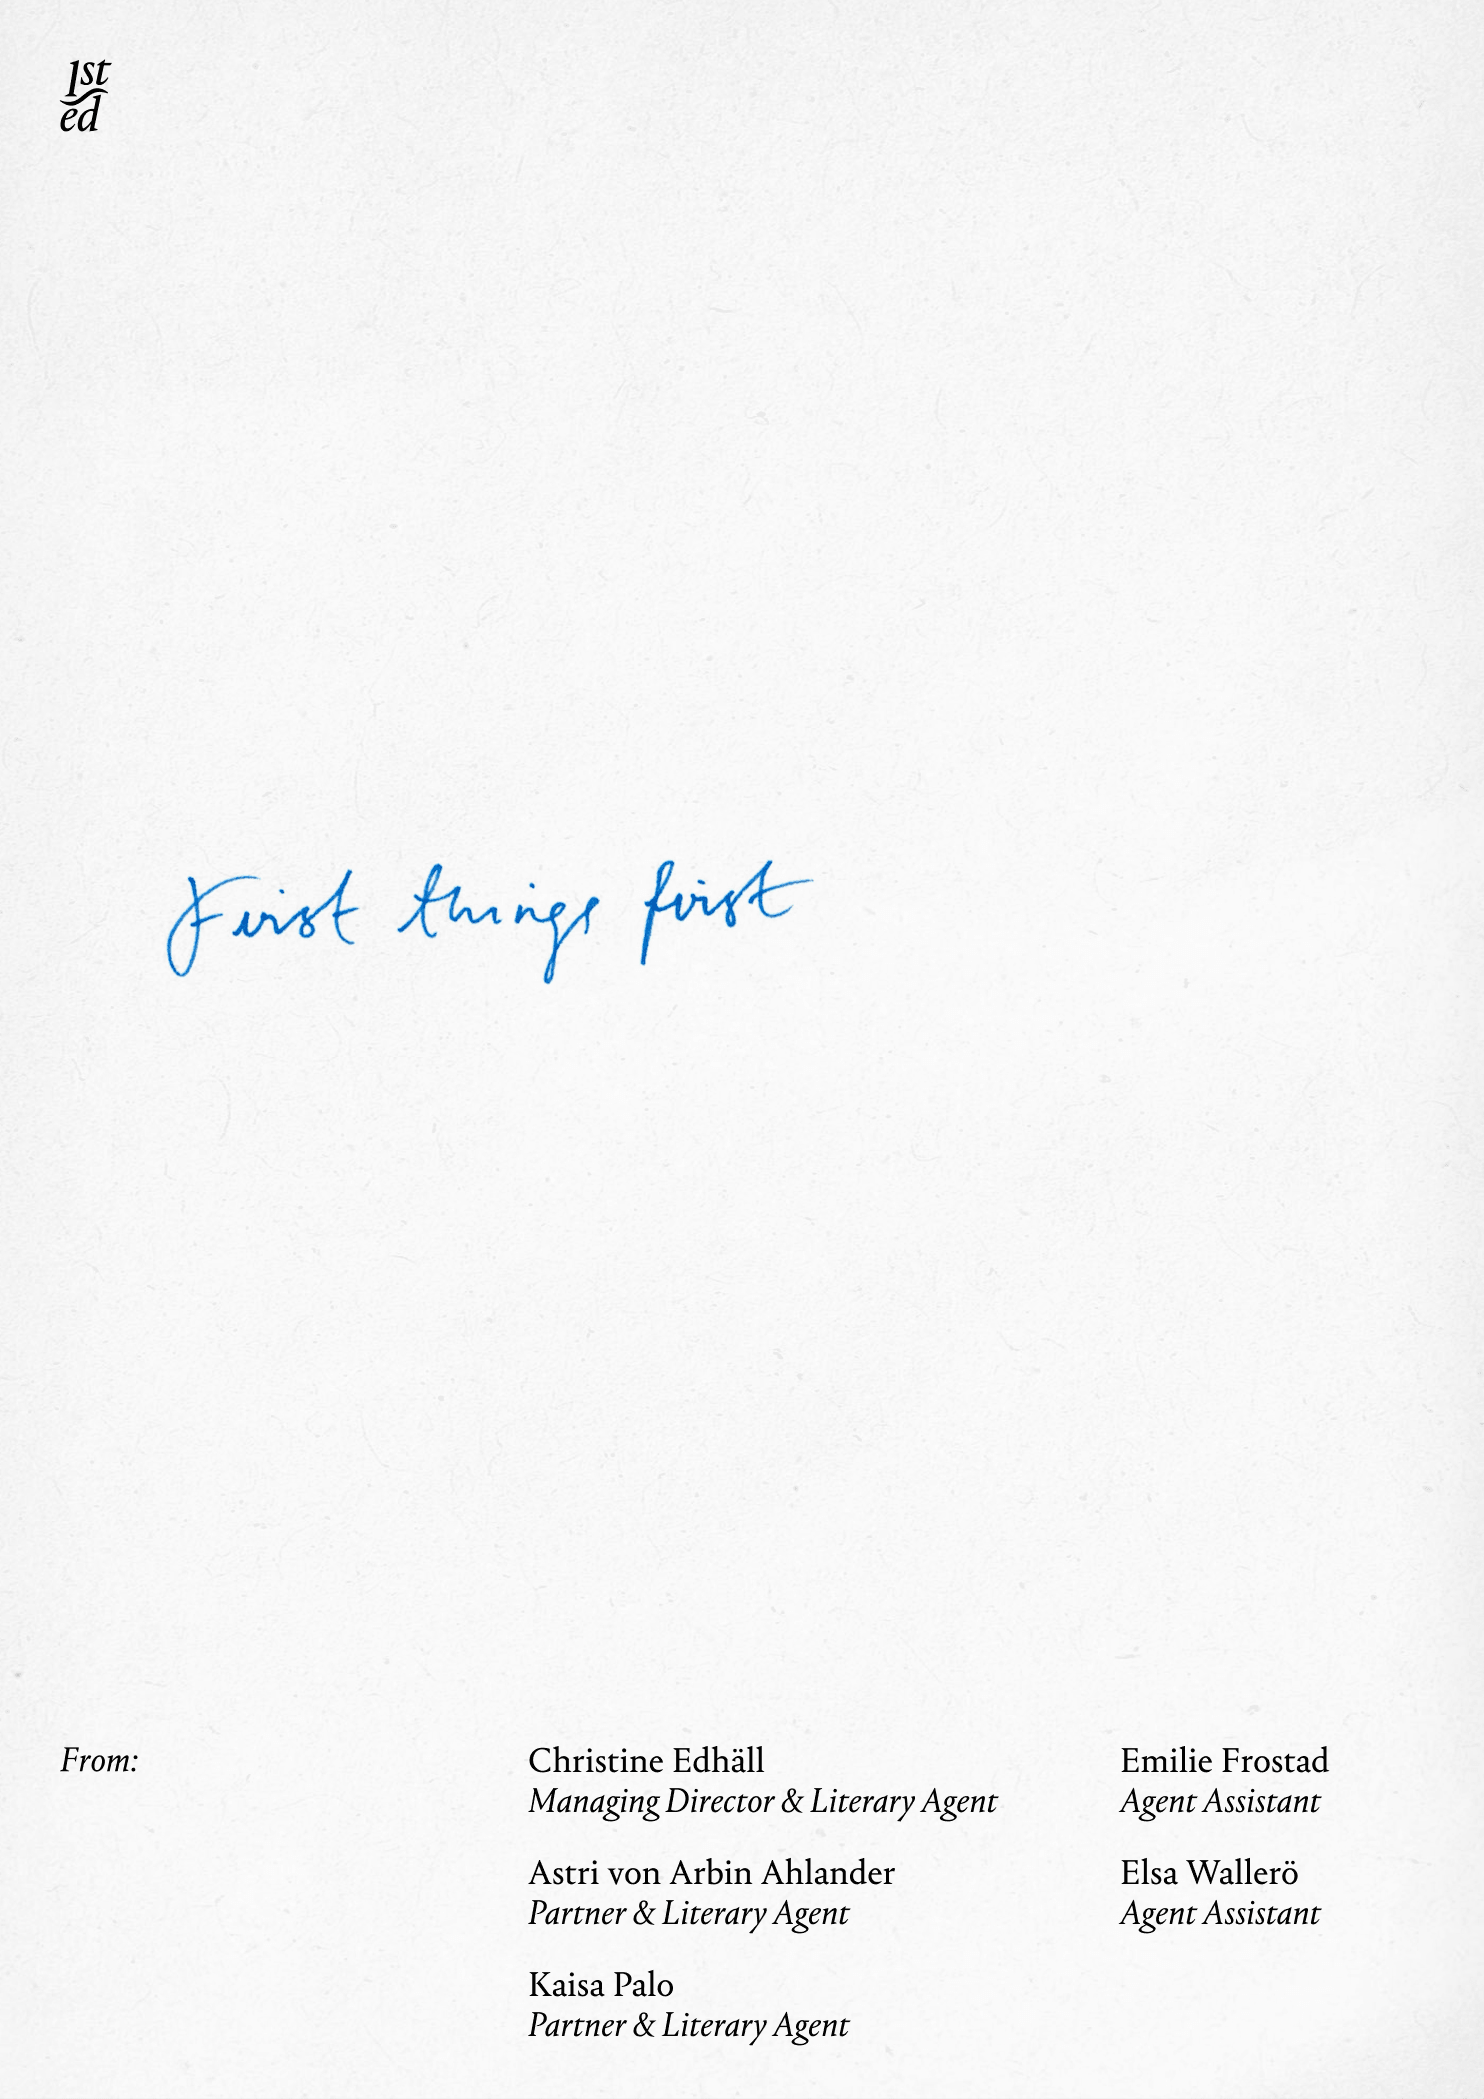 1st
ed
First things first
From:
Christine Edhäll
Managing Director & Literary Agent
Astri von Arbin Ahlander
Partner & Literary Agent
Kaisa Palo
Partner & Literary Agent
Emilie Frostad
Agent Assistant
Elsa Wallerö
Agent Assistant